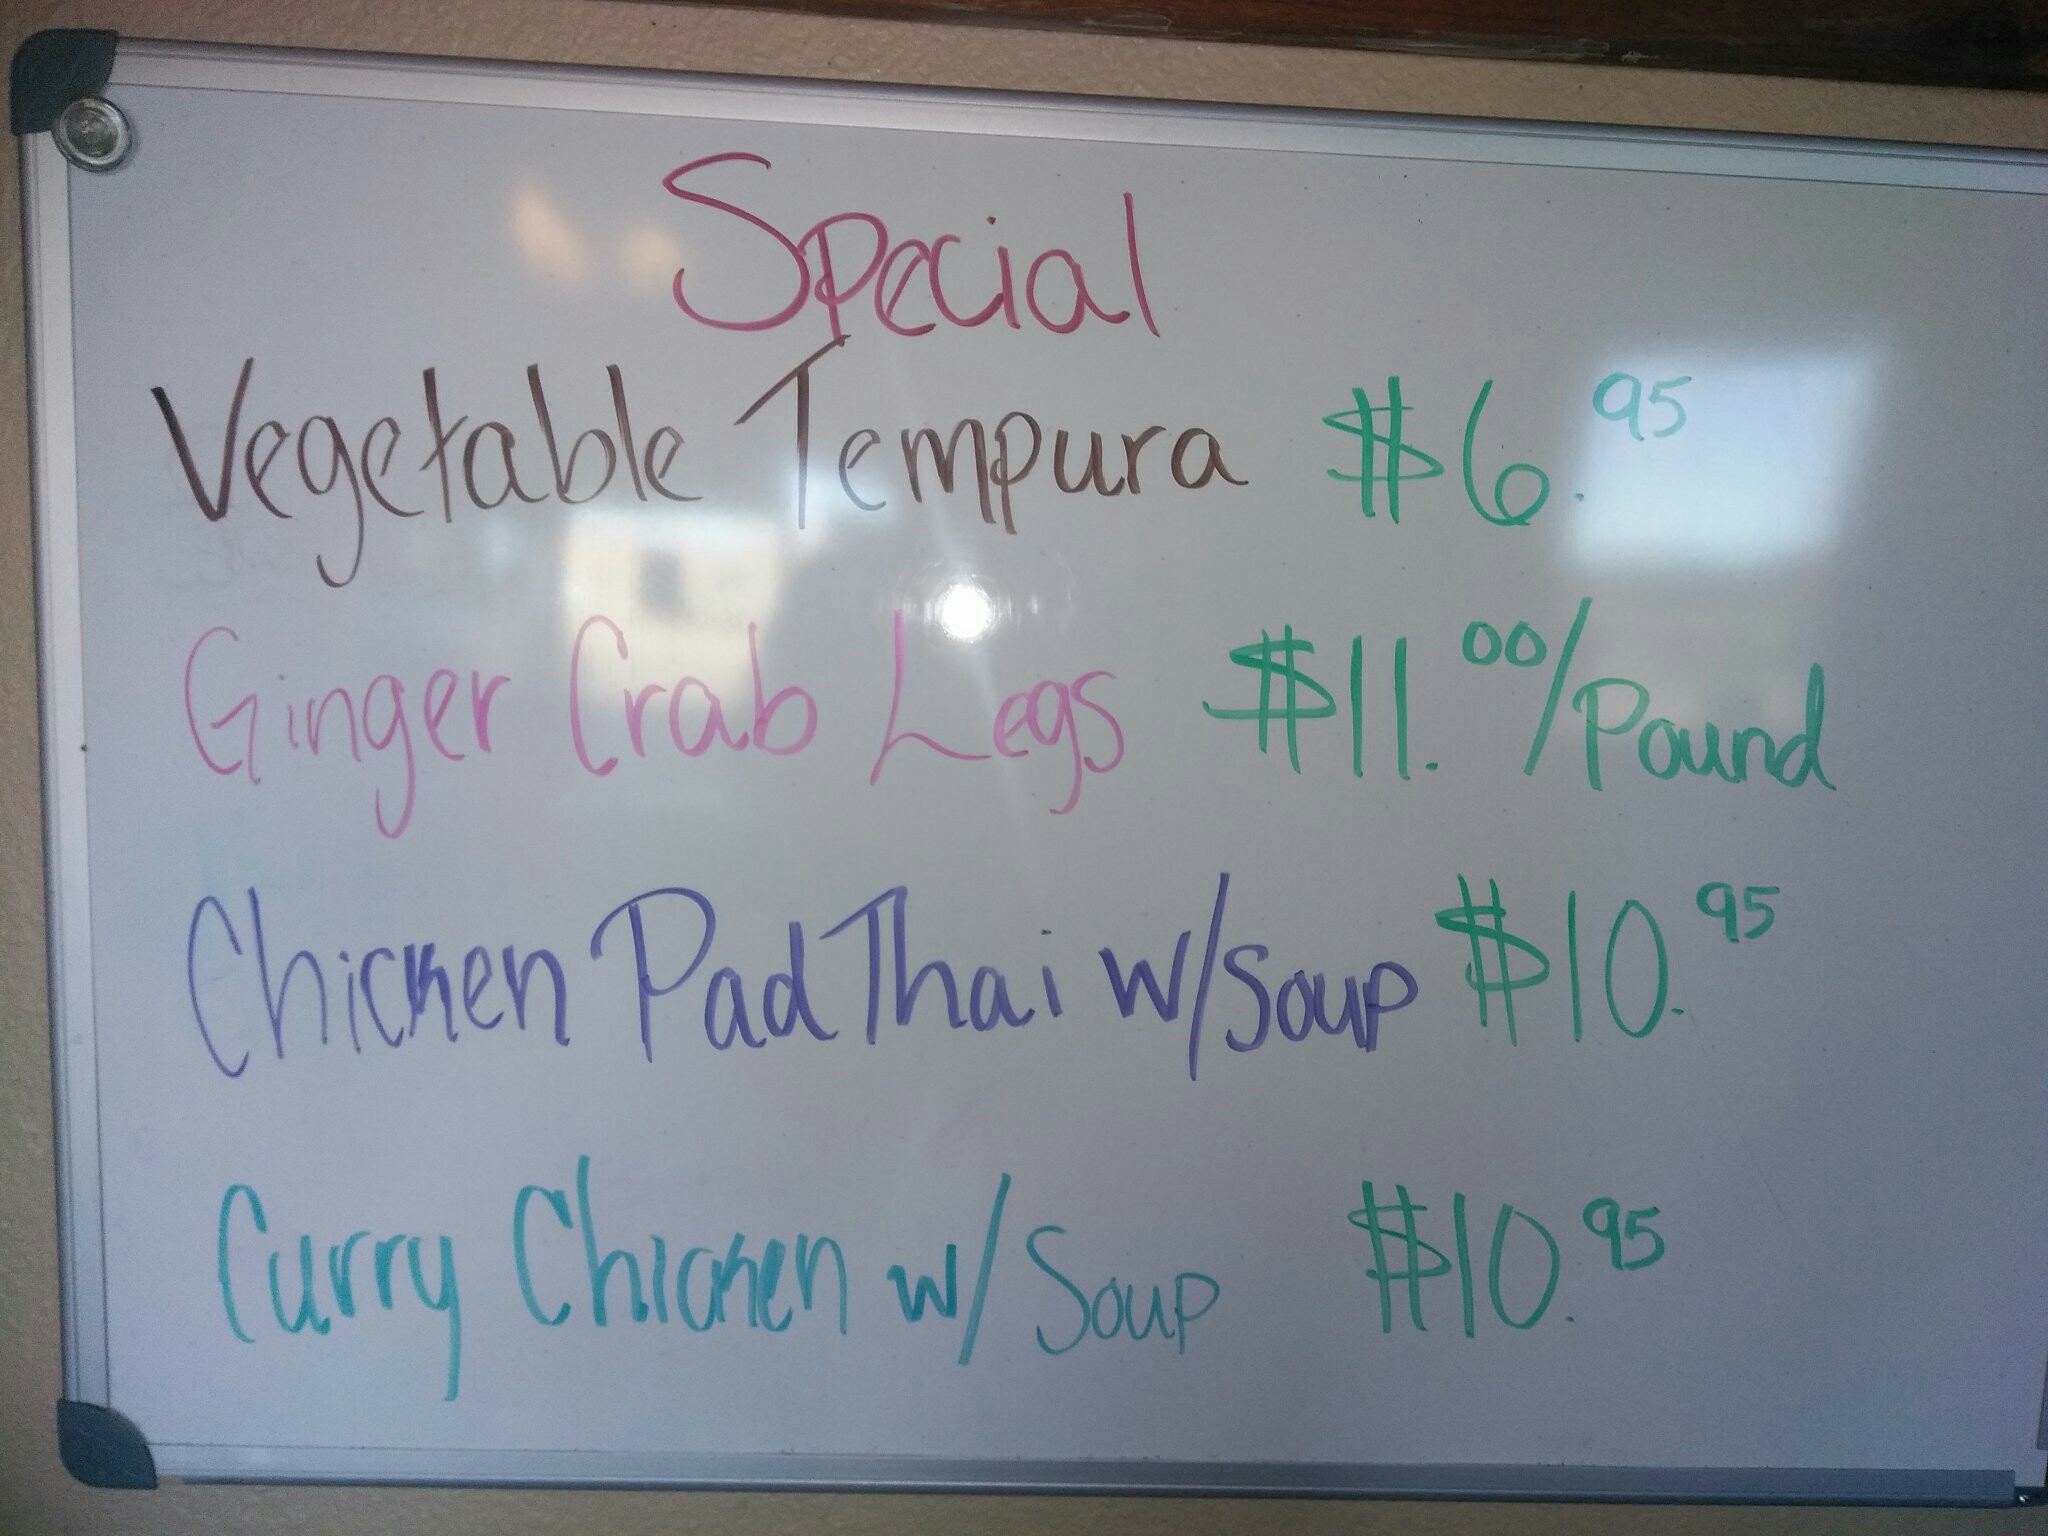 Special
Vegetable Tempura $6.95
Ginger Crab Legs $11.00/Pound
Chicken Pad Thai w/Soup $10.95
Curry Chicken w/ Soup $10.95